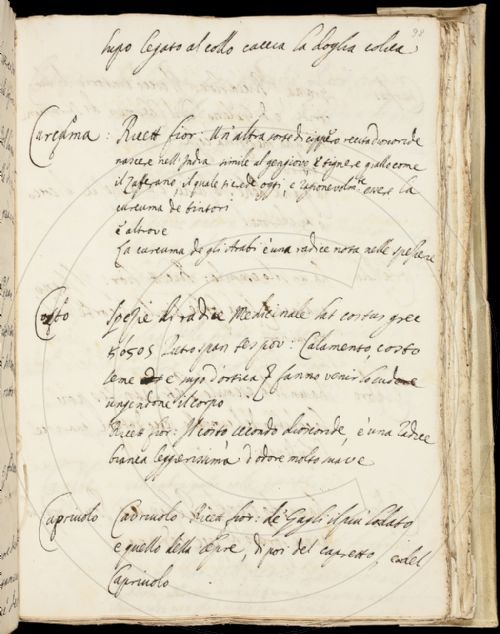 98
lupo legato al collo caccia la doglia colica
Curcuma : Ricett fior: Un'altra sorte di cippero recita dioscoride
nascere nell'India simile al gengiovo, e tignere giallo come
il Zafferano, il quale si crede oggi, e ragionevolmte essere la
curcuma de tintori
E altrove
La curcuma degli Arabi è una radice nota nelle spezierie
Costo Spezie di radice Medicinale lat costus grec
κόστος Tes pov: Calamento, costo
seme e sugo d'ortica fanno venir lo sudore
ungendone il corpo
Ricett fior: Il costo secondo dioscoride, è una radice
bianca leggerissima d'odore molto suave
Capriuolo Cavriuolo Ricett fior: de Gagli il più lodato
e quello della lepre, di poi del capretto, e del
Capriuolo